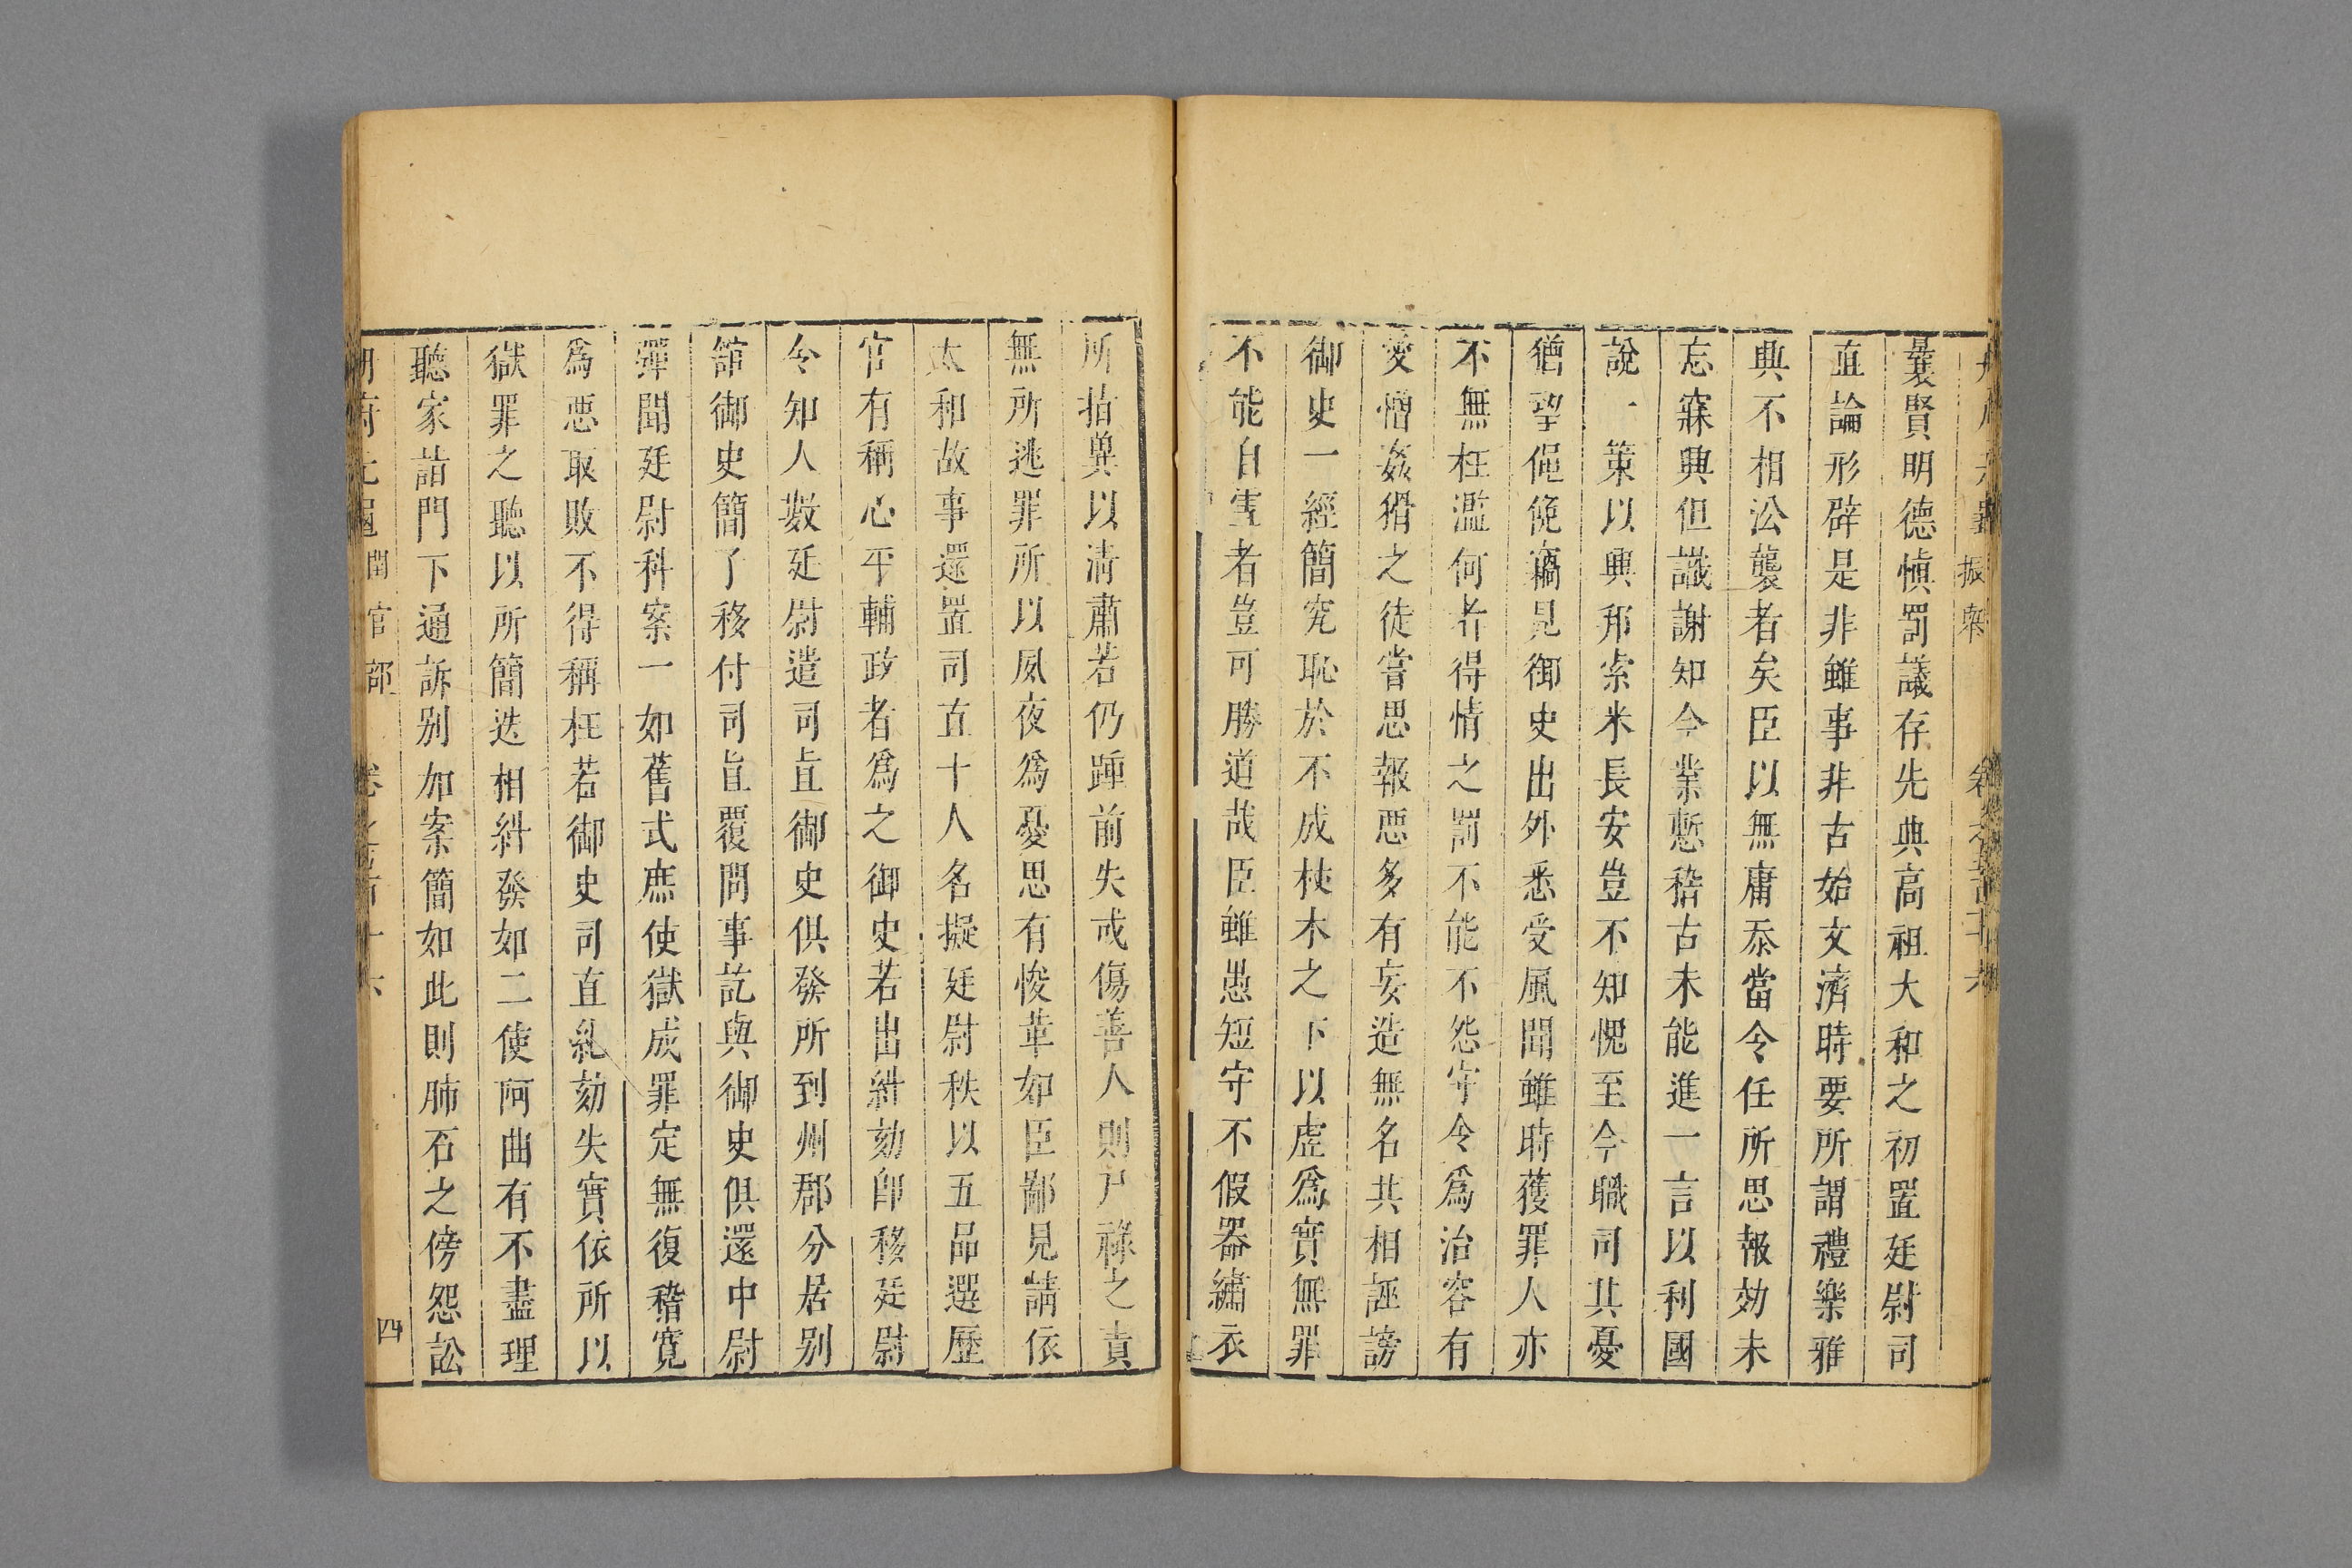 振舉
曩賢明德慎罰議存先典高祖大和之初置廷尉司
直論形辟是非雖事非古始交濟時要所謂禮樂雅
典不相㳂襲者矣臣以無庸忝當今任所思報効未
忘寐興但識謝知今業慙稽古未能進一言以利國
說一策以興邦索米長安豈不知愧至今職司其憂
猶望僶俛竊見御史出外悉受風聞雖時獲罪人亦
不無枉濫何者得情之罰不能不怨守令爲治容有
愛憎姦猾之徒嘗思報惡多有妄造無名共相誣謗
御史一經簡究恥於不成杖木之下以虛爲實無罪
不能自雪者豈可勝道哉臣雖愚短守不假器繡衣
所指冀以清肅若仍踵前失或傷善人則尸祿之責
無所逃罪所以夙夜爲憂思有悛革如臣鄙見請依
太和故事還置司直十人名擬廷尉秩以五品選歷
官有稱心平輔政者爲之御史若出糾劾即移廷尉
令知人數廷尉遣司直御史俱發所到州郡分居別
舘御史簡了移付司直覆問事訖與御史俱還中尉
彈聞廷尉科案一如舊式庶使獄成罪定無復稽寬
爲惡取敗不得稱枉若御史司直糺劾失實依所以
獄罪之聽以所簡迭相糾發如二使阿曲有不盡理
聽家詣門下通訴別加案簡如此則肺石之傍怨訟
官部
四